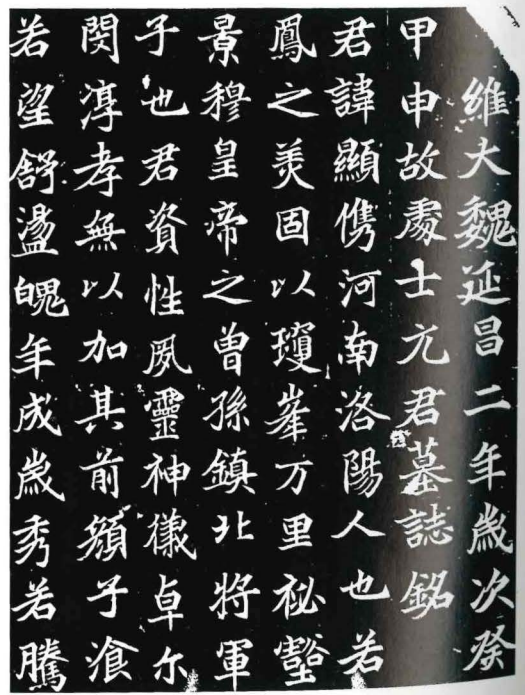 維大魏延昌二年歲次癸
甲申故處士元君墓誌銘
君諱顯儁河南洛陽人也若
鳳之羙固以瓊峯万里祕壑
景穆皇帝之曾孫鎮北將軍
子也君資性夙靈神儀卓尒
閔淳孝無以加其前顏子飡
若望舒盪魄年成歲秀若騰